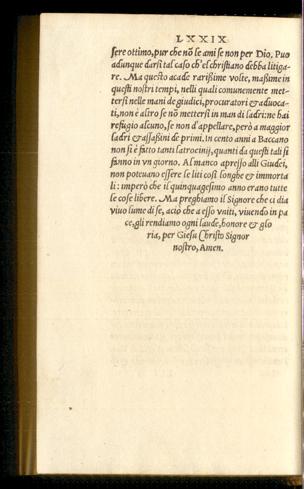 LXXIX
sere ottimo, pur che nõ se ami se non per Dio. Puo
adunque darsi tal caso ch'el christiano debba litiga-
re. Ma questo acade rarißime volte, maßime in
questi nostri tempi, nelli quali comunemente met-
tersi nelle mani de giudici, procuratori & aduoca-
ti, non è altro se nõ mettersi in man di ladri: ne hai
refugio alcuno, se non d'appellare, però a maggior
ladri & aſſaßini de primi. In cento anni a Baccano
non si è fatto tanti latrocinij, quanti da questi tali si
fanno in vn giorno. Al manco apreſſo alli Giudei,
non poteuano eſſere le liti cosi longhe & immorta
li: imperò che il quinquagesimo anno erano tutte
le cose libere. Ma preghiamo il Signore che ci dia
viuo lume di se, aciò che a eſſo vniti, viuendo in pa
ce, gli rendiamo ogni laude, honore & glo
ria, per Giesu Christo Signor
nostro, Amen.